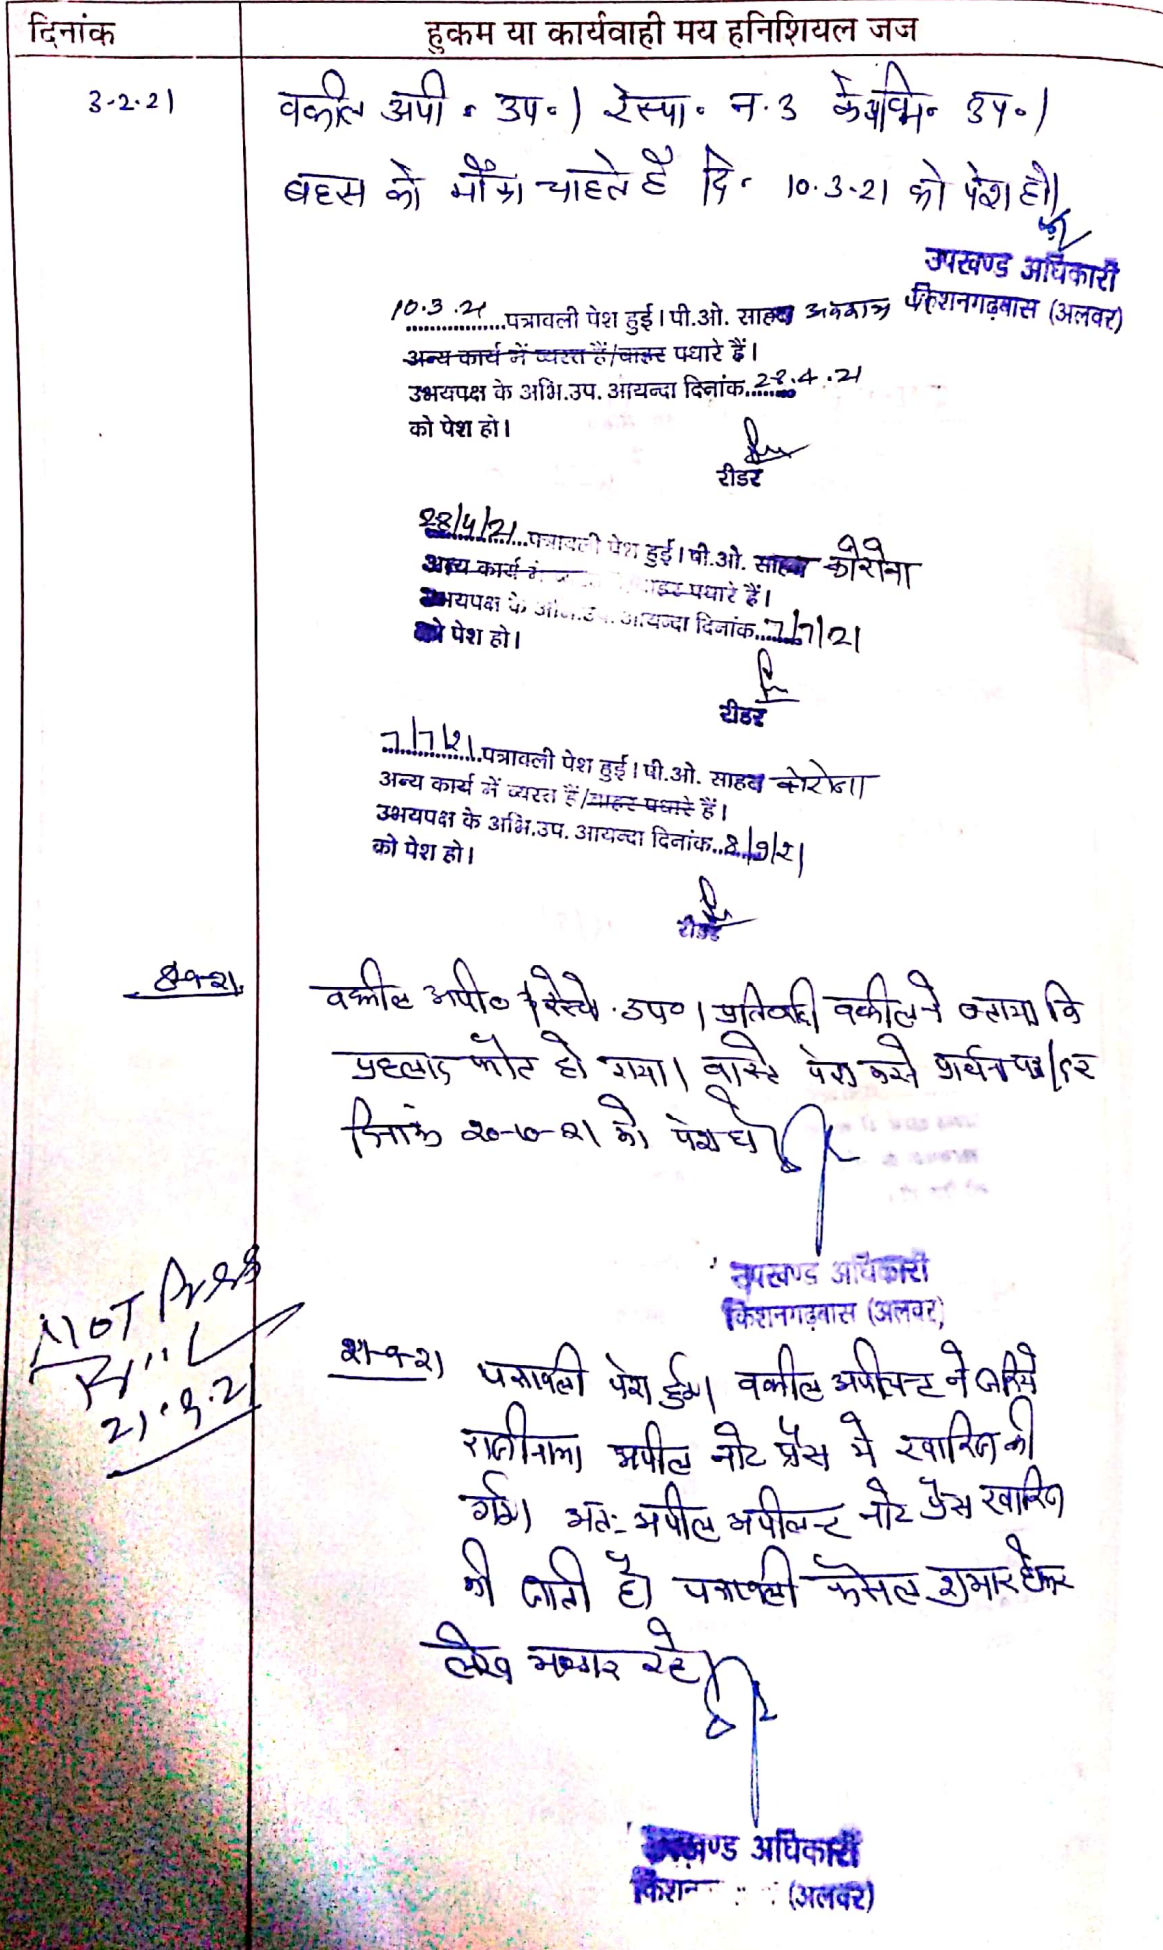 दिनांक
हुकम या कार्यवाही मय हनिशियल जज
3-2-21
वकील अपी॰ उप॰। रेस्पा॰ न.3 के अभि॰ उप॰।
बहस को मौका चाहते है दि॰ 10.3.21 को पेश हो।
उपखण्ड अधिकारी
किशनगढ़बास (अलवर)
10.3.21 पत्रावली पेश हुई। पी.ओ. साहब अवकाश
अन्य कार्य में व्यस्त हैं/बाहर पधारे हैं।
उभयपक्ष के अभि.उप. आयन्दा दिनांक..28.4.21
को पेश हो।
रीडर
28/4/21 पत्रावली पेश हुई। पी.ओ. साहब कोरोना
अन्य कार्य में बाहर पधारे हैं।
उभयपक्ष के अभि.उप. आयन्दा दिनांक..7/7/21
को पेश हो।
रीडर
7/7/21 पत्रावली पेश हुई। पी.ओ. साहब कोरोना
अन्य कार्य में व्यस्त हैं/बाहर पधारे हैं।
उभयपक्ष के अभि.उप. आयन्दा दिनांक..8/9/21
को पेश हो।
रीडर
8-9-21
वकील अपी॰ रेस्पो. उप॰। प्रतिवादी वकील ने बताया कि
प्रहलाद फौत हो गया। वास्ते पेश करने प्रार्थना पत्र
दिनांक 20-10-21 को पेश हो
उपखण्ड अधिकारी
किशनगढ़बास (अलवर)
NOT Press
21.9.21
21-9-21 पत्रावली पेश हुई। वकील अपीलान्ट ने जरिये
राजीनामा अपील नोट प्रेस मे खारिज की
गई। अतः अपील अपीलान्ट नोट प्रेस खारिज
की जाती है। पत्रावली फैसल शुमार होकर
रहे
उपखण्ड अधिकारी
किशन (अलवर)